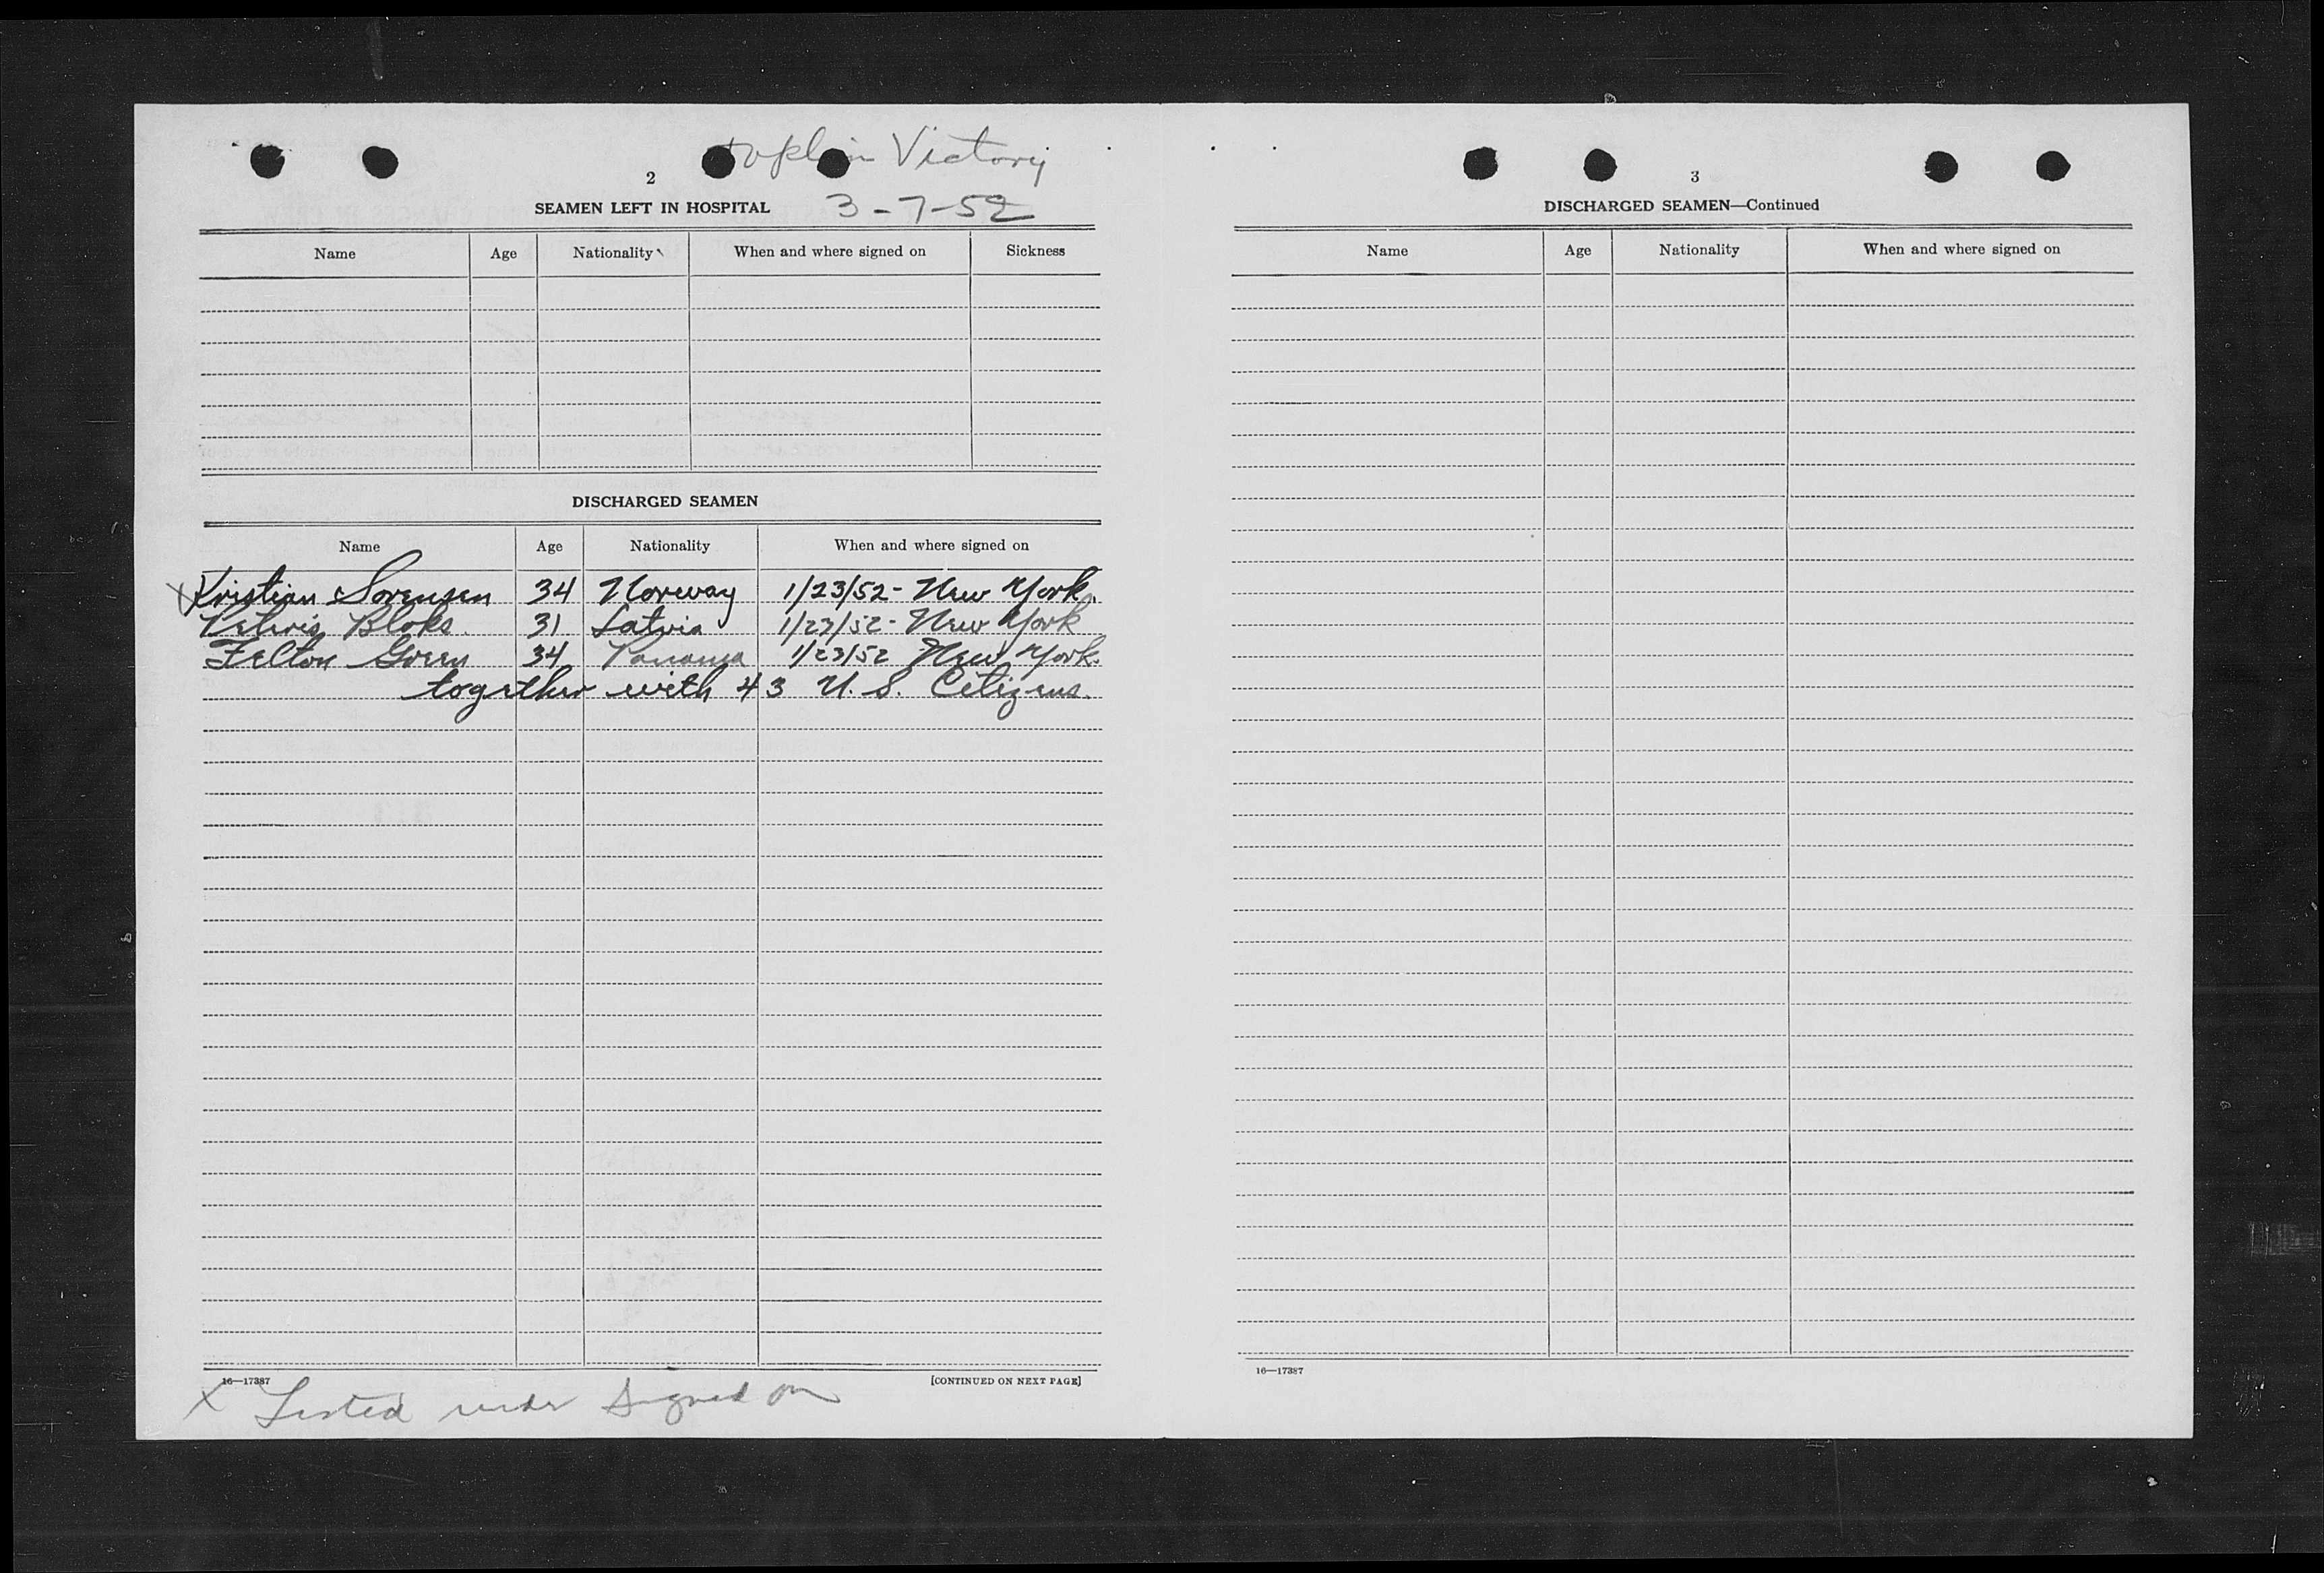 Joplin Victory
2
SEAMEN LEFT IN HOSPITAL 3-7-52
Name Age Nationality When and where signed on Sickness
DISCHARGED SEAMEN
Name Age Nationality When and where signed on
X Kristian Sorensen 34 Norway 1/23/52 - New York.
Bloks. 31 Latvia 1/23/52 - New York
Felton Green 34 Panama 1/23/52 New York.
together with 43 U.S. Citizens.
16—17387
[CONTINUED ON NEXT PAGE]
X Listed under Signed on
3
DISCHARGED SEAMEN—Continued
Name Age Nationality When and where signed on
16—17387